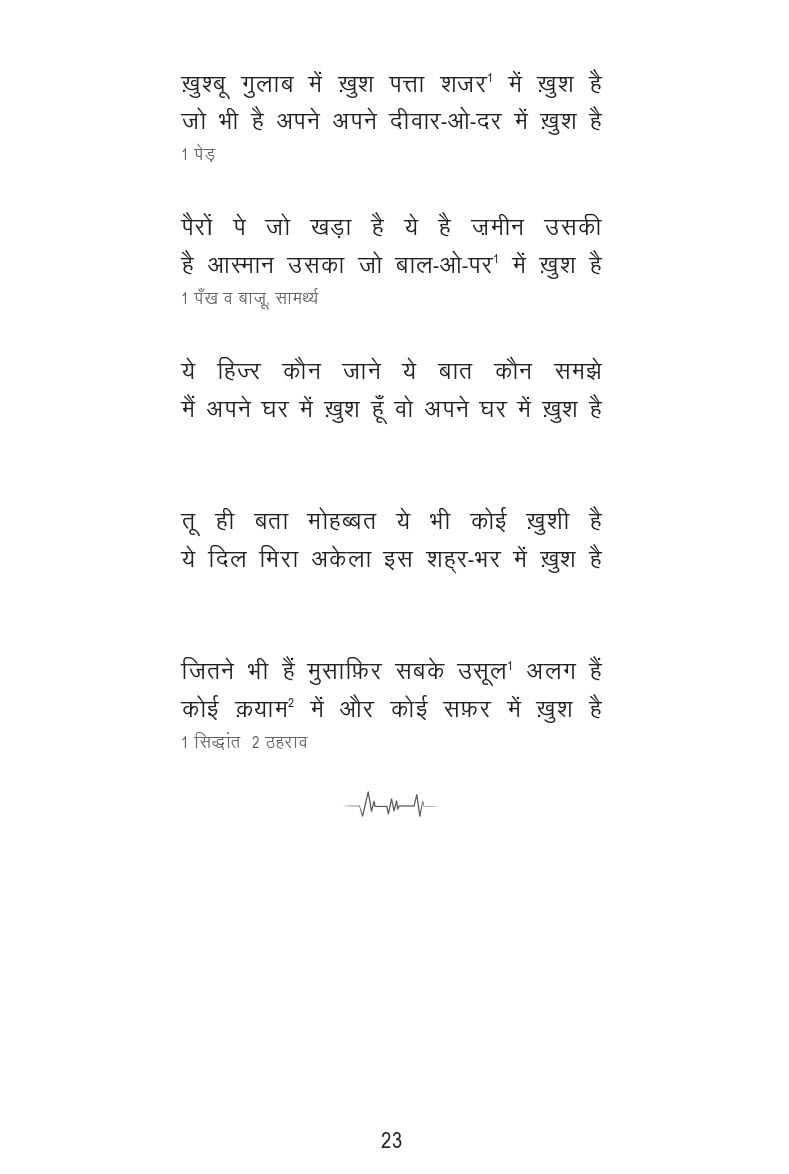 ख़ुश्बू गुलाब में ख़ुश पत्ता शजर¹ में ख़ुश है
जो भी है अपने अपने दीवार-ओ-दर में ख़ुश है
1 पेड़
पैरों पे जो खड़ा है ये है ज़मीन उसकी
है आस्मान उसका जो बाल-ओ-पर¹ में ख़ुश है
1 पँख व बाजू, सामर्थ्य
ये हिज्र कौन जाने ये बात कौन समझे
मैं अपने घर में ख़ुश हूँ वो अपने घर में ख़ुश है
तू ही बता मोहब्बत ये भी कोई ख़ुशी है
ये दिल मिरा अकेला इस शह्र-भर में ख़ुश है
जितने भी हैं मुसाफ़िर सबके उसूल¹ अलग हैं
कोई क़याम² में और कोई सफ़र में ख़ुश है
1 सिद्धांत 2 ठहराव
23